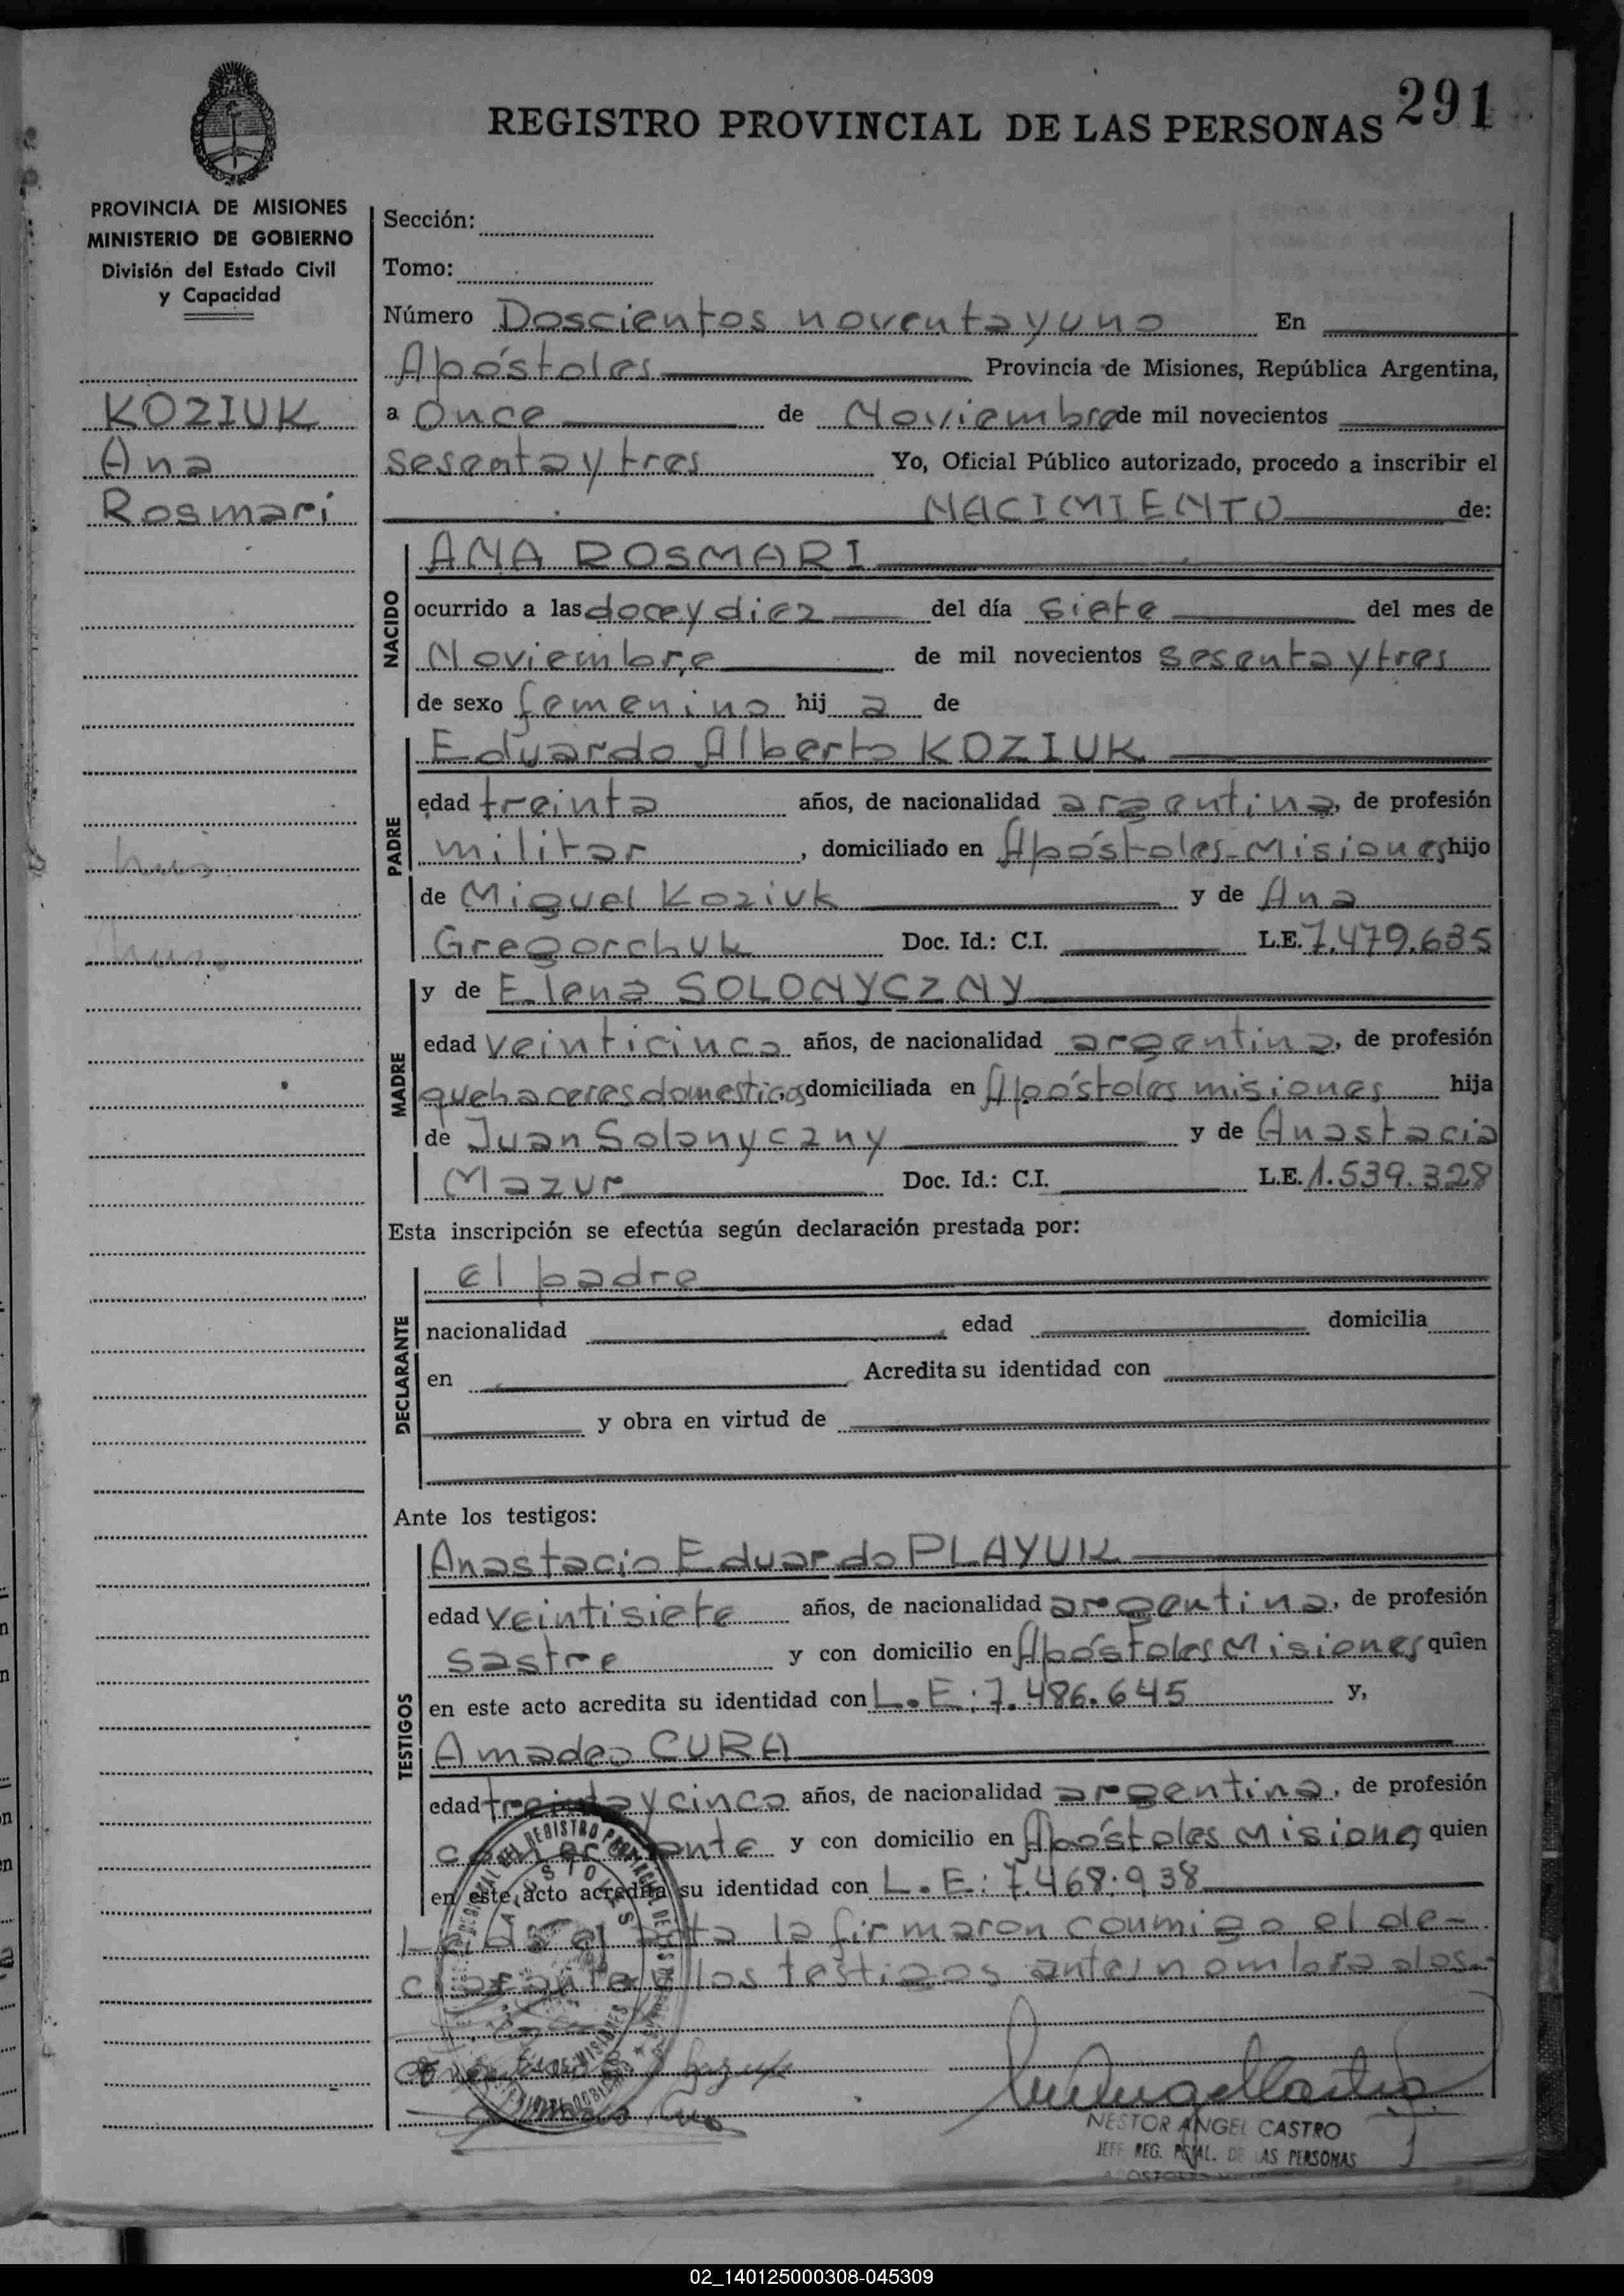 291
REGISTRO PROVINCIAL DE LAS PERSONAS
PROVINCIA DE MISIONES
MINISTERIO DE GOBIERNO
División del Estado Civil
y Capacidad
KOZIUK
Ana
Rosmari
Sección:
Tomo:
Número Doscientos noventa y uno En
Apóstoles Provincia de Misiones, República Argentina,
a Once de Noviembre de mil novecientos
sesenta y tres Yo, Oficial Público autorizado, procedo a inscribir el
NACIMIENTO de:
NACIDO
ANA ROSMARI
ocurrido a las doce y diez del día siete del mes de
Noviembre de mil novecientos sesenta y tres
de sexo femenino hij a de
PADRE
Eduardo Alberto KOZIUK
edad treinta años, de nacionalidad argentina, de profesión
militar, domiciliado en Apóstoles-Misiones hijo
de Miguel Koziuk y de Ana
Gregorchuk Doc. Id.: C.I. L.E. 7.479.635
MADRE
y de Elena SOLONYCZNY
edad veinticinco años, de nacionalidad argentina, de profesión
quehaceres domesticos domiciliada en Apóstoles misiones hija
de Juan Solonyczny y de Anastacia
Mazur Doc. Id.: C.I. L.E. 1.539.328
Esta inscripción se efectúa según declaración prestada por:
DECLARANTE
el padre
nacionalidad edad domicilia
en Acredita su identidad con
y obra en virtud de
Ante los testigos:
TESTIGOS
Anastacio Eduardo PLAYUK
edad veintisiete años, de nacionalidad argentina, de profesión
sastre y con domicilio en Apóstoles Misiones quien
en este acto acredita su identidad con L.E: 7.486.645 y,
Amadeo CURA
edad treinta y cinco años, de nacionalidad argentina, de profesión
comerciante y con domicilio en Apóstoles Misiones quien
en este acto acredita su identidad con L.E: 7.468.938
Leída el acta la firmaron conmigo el de-
clarante y los testigos antes nombrados.-
NESTOR ANGEL CASTRO
JEFE REG. PCIAL. DE LAS PERSONAS
02_140125000308-045309